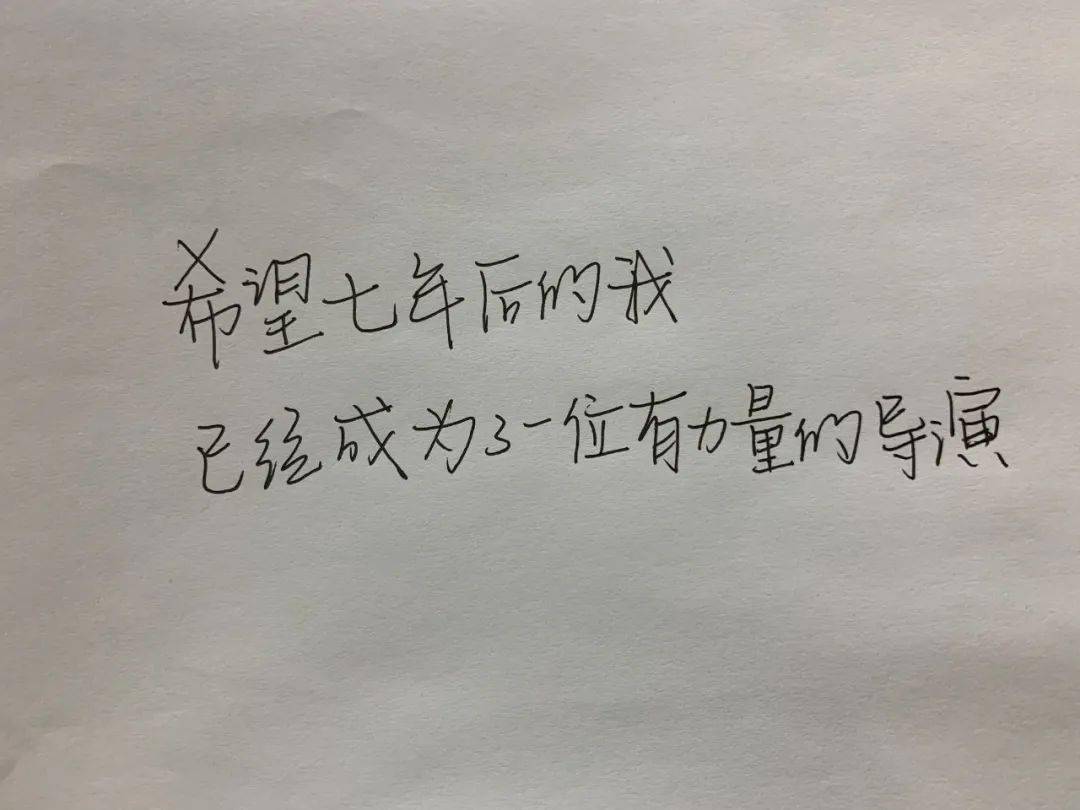 希望七年后的我
已经成为了一位有力量的导演